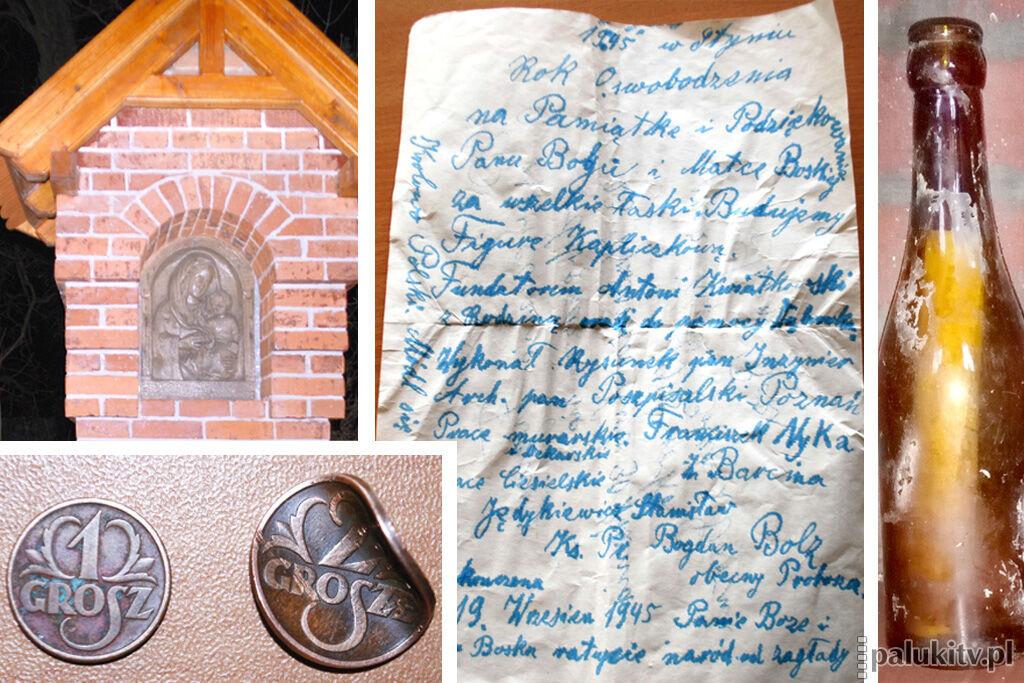 1945 w
Rok Oswobodzenia
na Pamiątkę i Podziękowanie
Panu Bogu i Matce Boskiej
za wszelkie Łaski Budujemy
Figurę Kapliczkową.
Fundatorem Antoni Kwiatkowski
z Rodziną do
Wykonał Rysunek pan Inżynier
Arch. pan Pospisalski Poznań
Prace murarskie Franciszek
i Dekarskie
Ciesielskie z Barcina
Jędykiewicz Stanisław
Ks. Bogdan Bolz
obecny
19. Wrzesień 1945 Panie Boże i
Boska ratujcie naród od zagłady
1
GROSZ
2
GROSZE
palukitv.pl